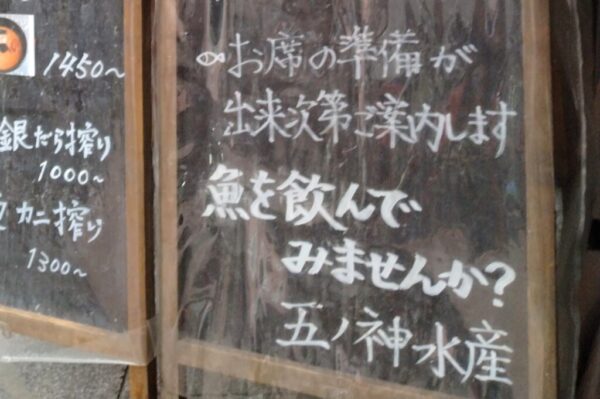 1450〜
銀だら搾り
1000〜
カニ搾り
1300〜
お席の準備が
出来次第ご案内します
魚を飲んで
みませんか?
五ノ神水産